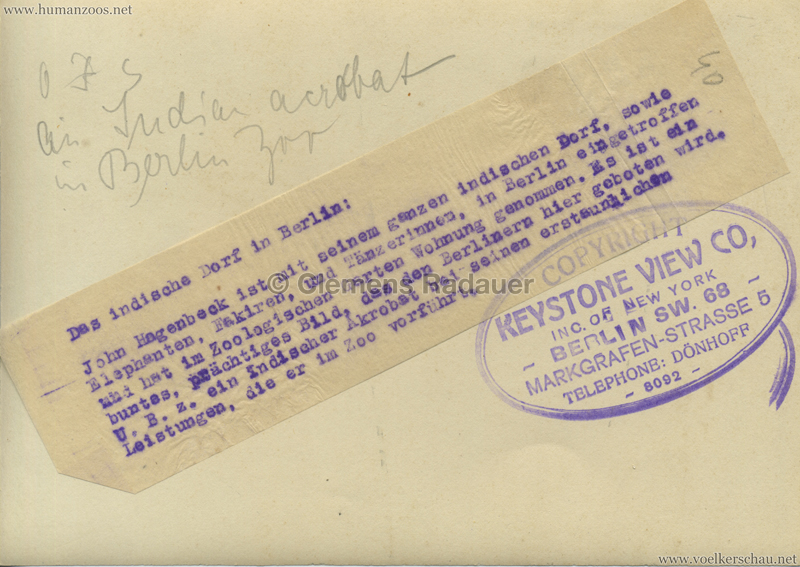 www.humanzoos.net
an Indian acrobat
in Berlin Zoo
40
Das indische Dorf in Berlin:
John Hagenbeck ist mit seinem ganzen indischen Dorf, sowie
Elephanten, Fakiren, und Tänzerinnen, in Berlin eingetroffen
und hat im Zoologischen Garten Wohnung genommen. Es ist ein
buntes, prächtiges Bild, das den Berlinern hier geboten wird.
U. B. z. ein Indischer Akrobat bei seinen erstaunlichen
Leistungen, die er im Zoo vorführt.
© Clemens Radauer
COPYRIGHT
KEYSTONE VIEW CO,
INC. OF NEW YORK
- BERLIN SW. 68 -
MARKGRAFEN-STRASSE 5
TELEPHONE: DÖNHOFF
- 8092 -
www.voelkerschau.net